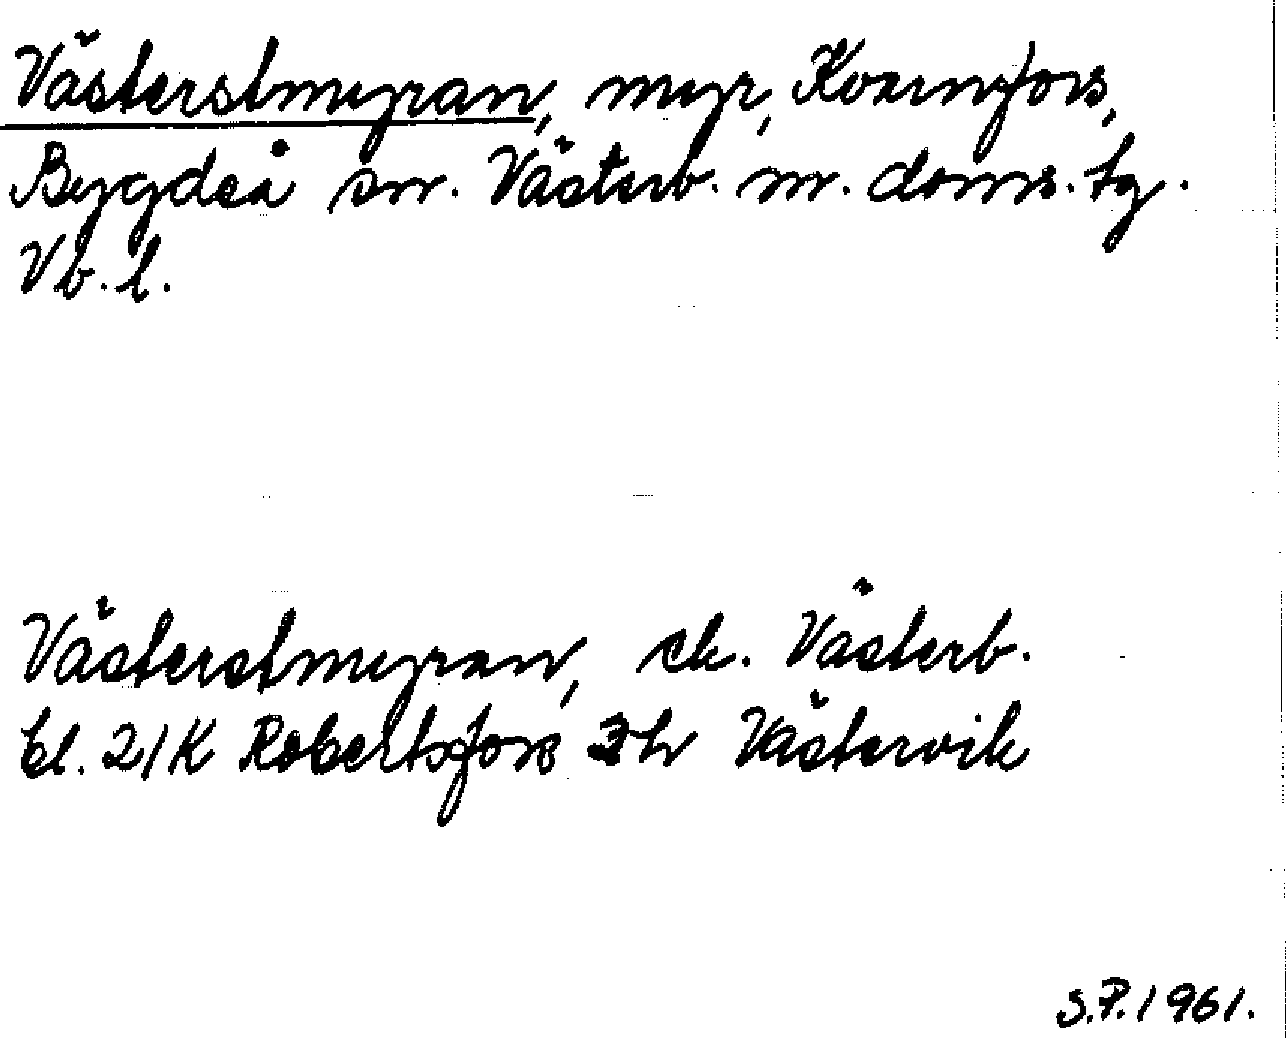 Västerstmyran, myr, Kvarnfors,
Bygdeå sn. Västerb. m. doms. tg.
Vb. l.
Västerstmyran, ek. Västerb.
bl. 21K Robertsfors 3h Västervik
S.P. 1961.